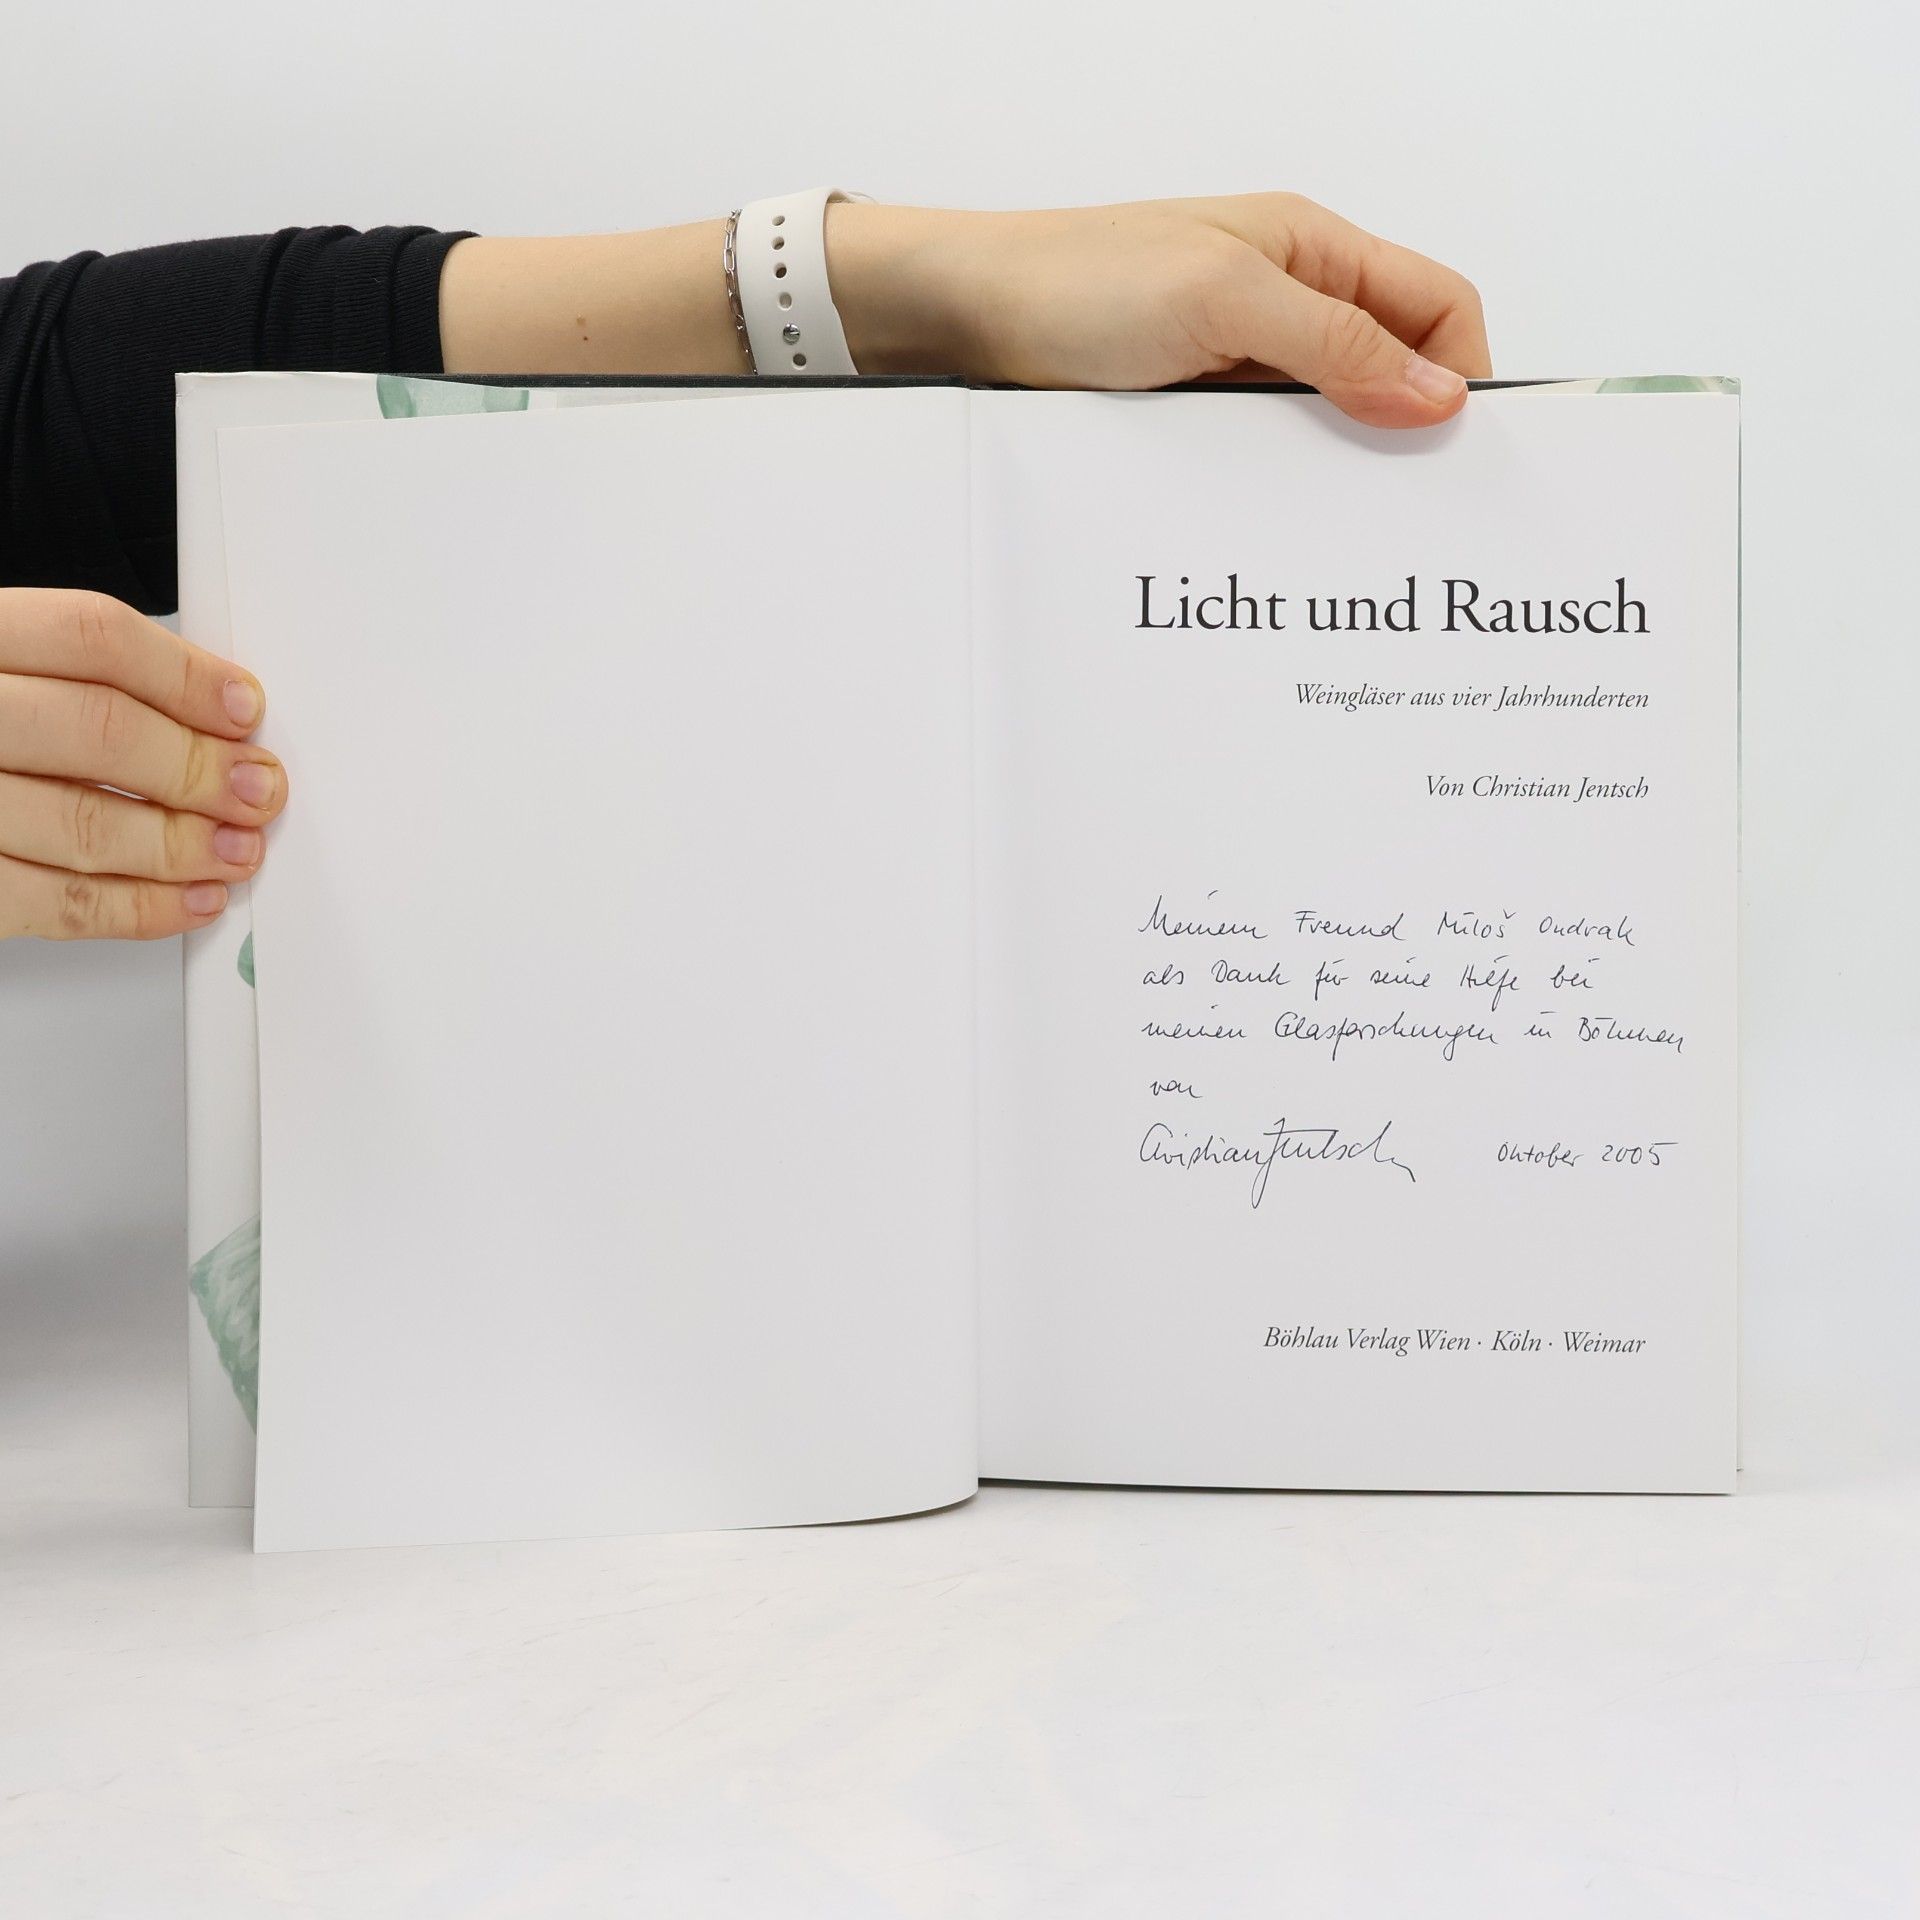 Licht und Rausch
Weingläser aus vier Jahrhunderten
Von Christian Jentsch
Meinem Freund Miloš Ondrak
als Dank für seine Hilfe bei
meinen Glasforschungen in Böhmen
von
Christian Jentsch Oktober 2005
Böhlau Verlag Wien · Köln · Weimar